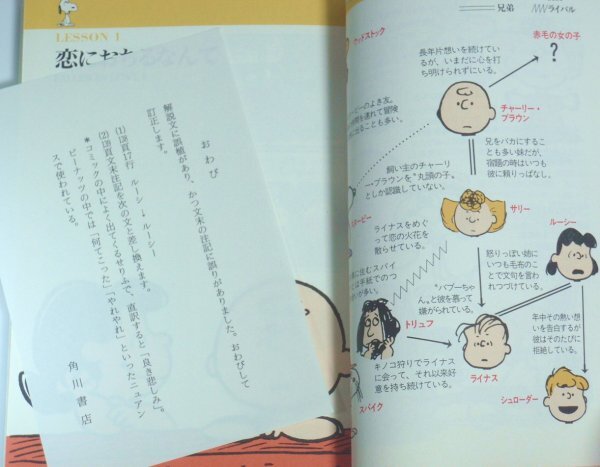 LESSON 1
恋にお
おわび
解説文に誤植があり、かつ文末の注記に誤りがありました。おわびして
訂正します。
ルーシー → ルーシー
文末注記を次の文と差し換えます。
*コミックの中によく出てくるせりふで、直訳すると「良き悲しみ」。
ピーナッツの中では「何てこった」「やれやれ」といったニュアン
スで使われている。
角川書店
兄弟
ライバル
ウッドストック
長年片想いを続けてい
るが、いまだに心を打
ち明けられずにいる。
赤毛の女の子
?
チャーリー・
ブラウン
ーピーのよき友。
間を連れて冒険
ることも多い。
兄をバカにするこ
とも多い妹だが、
宿題の時はいつも
彼に頼りっぱなし。
飼い主のチャーリ
ー・ブラウンを“丸頭の子”
としか認識していない。
ヌーピー
サリー
ルーシー
ライナスをめぐ
って恋の火花を
散らせている。
怒りっぽい姉に
いつも毛布のこ
とで文句を言わ
れつづけている。
に住むスパイ
は手紙でのつ
いが多い。
“バブーちゃ
ん〟と彼を慕って
嫌がられている。
トリュフ
ライナス
年中その熱い想い
を告白するが
彼はそのたびに
拒絶している。
キノコ狩りでライナス
に会って、それ以来好
意を持ち続けている。
スパイク
シュローダー